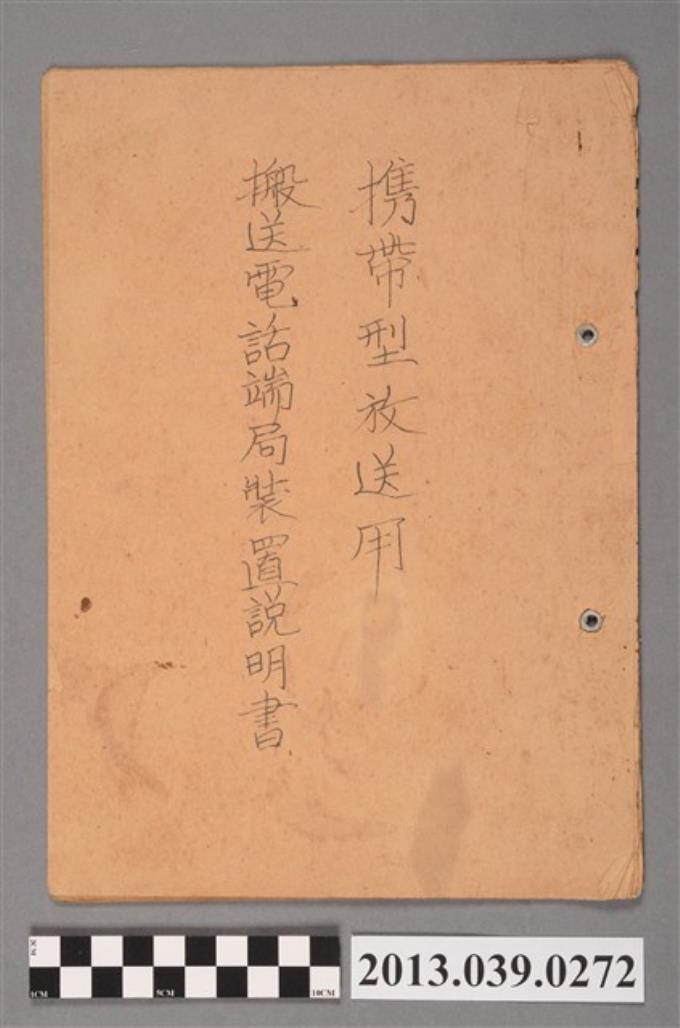 携帶型放送用
搬送電話端局裝置説明書
1CM 5CM 10CM
2013.039.0272